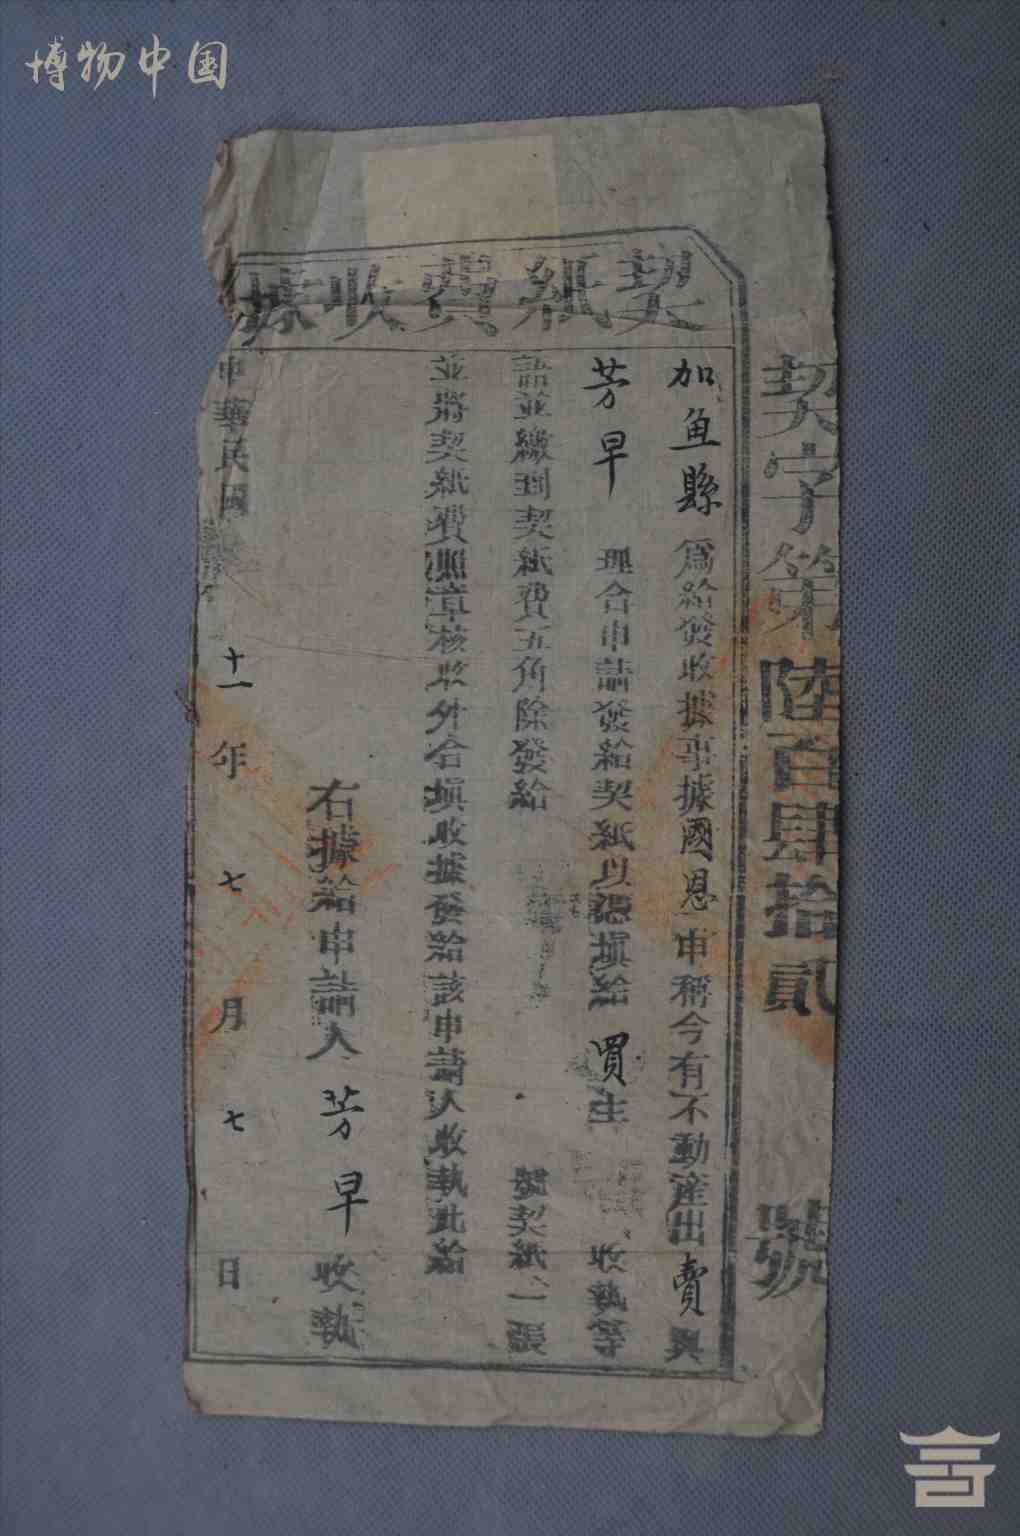 博物中国
契字第陸百肆拾貳號
契紙費收據
加鱼縣為給發收據事據國恩申稱今有不動產出賣與
芳早 理合申請發給契紙以憑填給買主 收執等
語並繳到契紙費五角除發給 號契紙一張
並將契紙費照章核收外合填收據發給該申請人收執此給
右據給申請人芳早收執
中華民國十一年七月七日